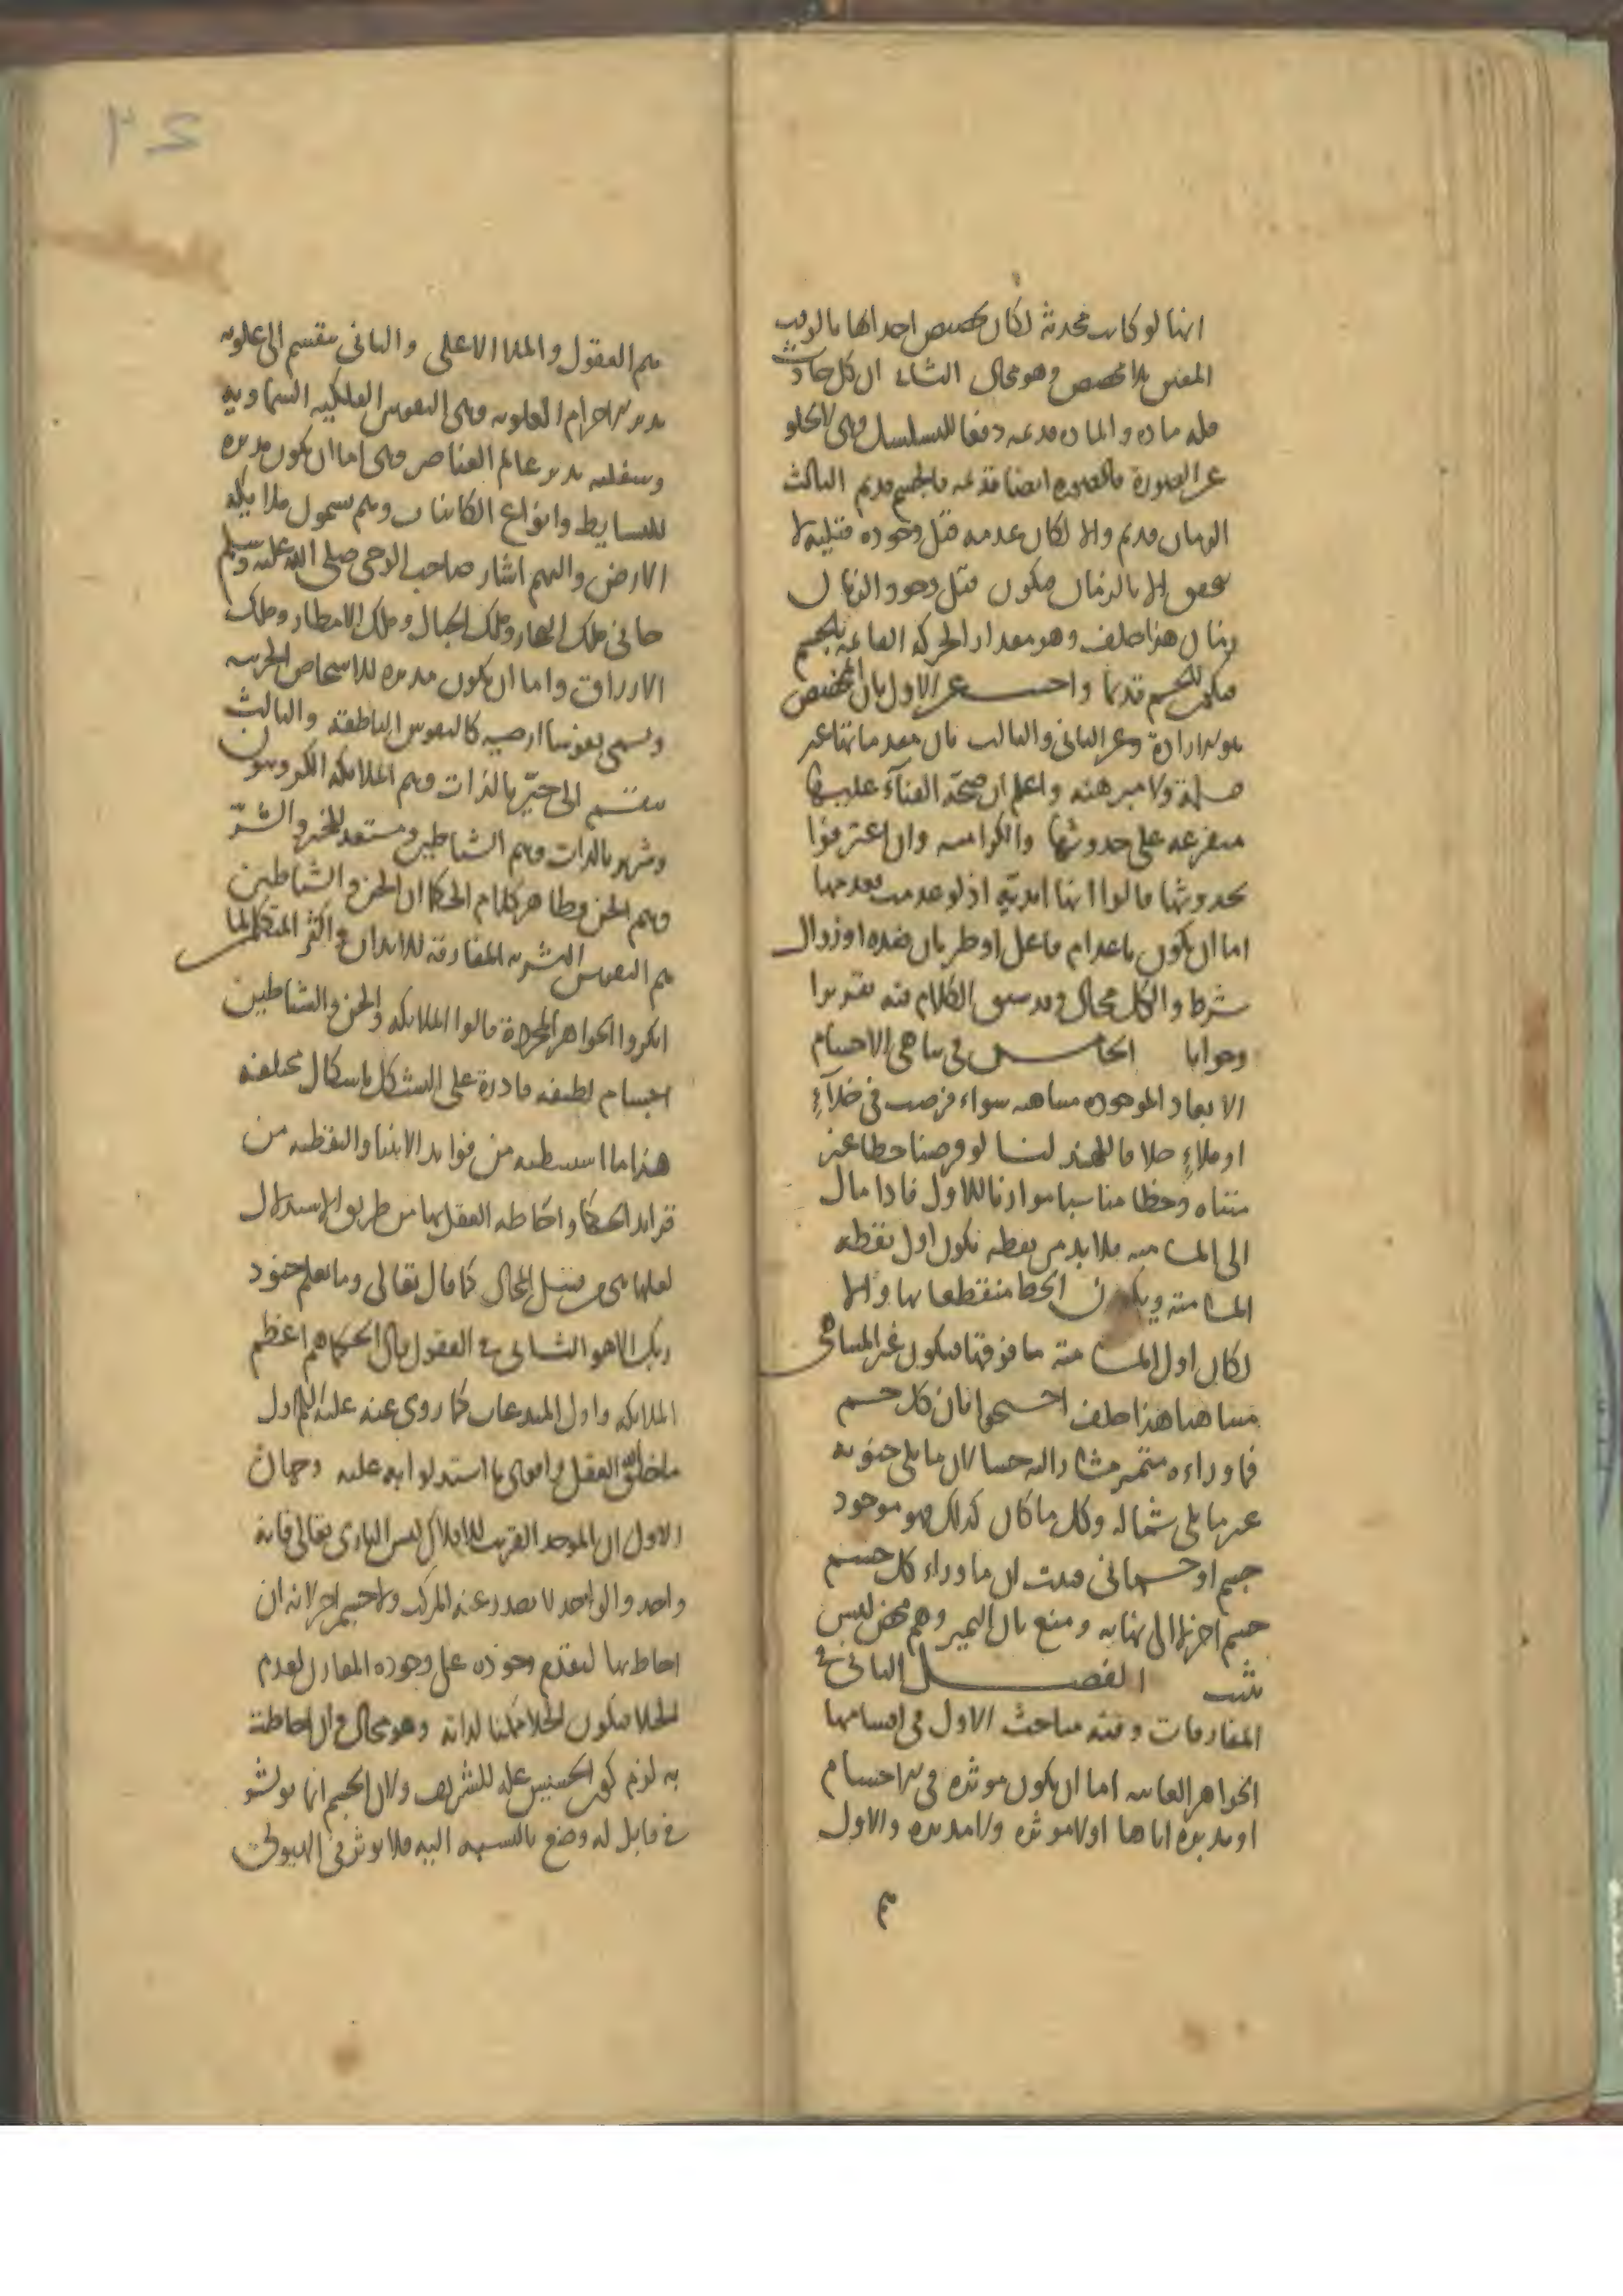 انها لو كانت محدثة لكان تخصيص احداثها بالوقت
المعين بلا مخصص وهو محال الثاني ان كل حادث
فله مادة والمادة قديمة دفعا للتسلسل وهي لا تخلو
عن الصورة فالصورة ايضا قديمة فالجسم قديم الثالث
الزمان قديم والا لكان عدمه قبل وجوده قبلية لا
تتحقق الا بالزمان فيكون قبل وجود الزمان
زمان هذا خلف وهو مقدار الحركة القائمة بالجسم
فيكون الجسم قديما واجيب عن الاول بان المخصص
هو الارادة وعن الثاني والثالث بان مقدماتها غير
مسلمة ولا مبرهنة واعلم ان صحة الفناء عليها
متفرعة على حدوثها والكرامية وان اعترفوا
بحدوثها قالوا انها ابدية اذ لو عدمت فعدمها
اما ان يكون باعدام فاعل او طريان ضده او زوال
شرط والكل محال وقد سبق الكلام فيه تقريرا
وجوابا الخامس في تناهي الاجسام
الابعاد الموجودة متناهية سواء فرضت في خلاء
او ملاء خلافا للهند لنا لو فرضنا خطا غير
متناه وخطا متناهيا موازنا للاول فاذا مال
الى المسامتة فلا بد من نقطة تكون اول نقطة
المسامتة ويكون الخط منقطعا بها والا
لكان اول المسامتة ما فوقها فيكون غير المتناهي
متناهيا هذا خلف احتجوا بان كل جسم
فما وراءه متميز مشار اليه حسا لان ما يلي جنوبه
غير ما يلي شماله وكل ما كان كذلك فهو موجود
جسم او جسماني فثبت ان ما وراء كل جسم
جسم اخر لا الى نهاية ومنع بان التميز وهم محض ليس
يثبت الفصل الثاني في
المفارقات وفيه مباحث الاول في اقسامها
الجواهر الغائبة اما ان يكون موثرة في الاجسام
او مدبرة اياها او لا موثرة ولا مدبرة والاول
هم
٢٤
هم العقول والملا الاعلى والثاني ينقسم الى علوية
يدبر الاجرام العلوية وهي النفوس الفلكية السماوية
وسفلية يدبر عالم العناصر وهي اما ان يكون مدبرة
للبسايط وانواع الكاينات وهم يسمون ملايكة
الارض واليهم اشار صاحب الوحي صلى الله عليه وسلم
جاني ملك البحار وملك الجبال وملك الامطار وملك
الارزاق واما ان يكون مدبرة للاشخاص الجزئية
ويسمى نفوسا ارضية كالنفوس الناطقة والثالث
ينقسم الى خير بالذات وهم الملايكة الكروبيون
وشرير بالذات وهم الشياطين ومستعد للخير والشر
وهم الجن وظاهر كلام الحكما ان الجن والشياطين
هم النفوس البشرية المفارقة للابدان واكثر المتكلمين لما
انكروا الجواهر المجردة قالوا الملايكة والجن والشياطين
اجسام لطيفة قادرة على التشكل باشكال مختلفة
هذا ما استنبطته من فوايد الانبيا والتقطته من
فرايد الحكما واحاطة العقل بها من طريق الاستدلال
لعلها هي من قبيل المحال كما قال تعالى وما يعلم جنود
ربك الا هو الثاني في العقول قال الحكما هم اعظم
الملايكة واول المبدعات كما روي عنه عليه السلم اول
ما خلق الله العقل واقوى ما استدلوا به عليه وجهان
الاول ان الموجد القريب للافلاك ليس الباري تعالى فانه
واحد والواحد لا يصدر عنه المركب ولا جسم اخر لانه ان
احاط بها لتقدم وجوده على وجوده المقارن لعدم
الخلا فيكون الخلا ممكنا لذاته وهو محال وان احاطت
به لزم كون الخسيس علة للشريف ولان الجسم انما يوثر
في قابل له وضع بالنسبة اليه فلا يوثر في الهيولى